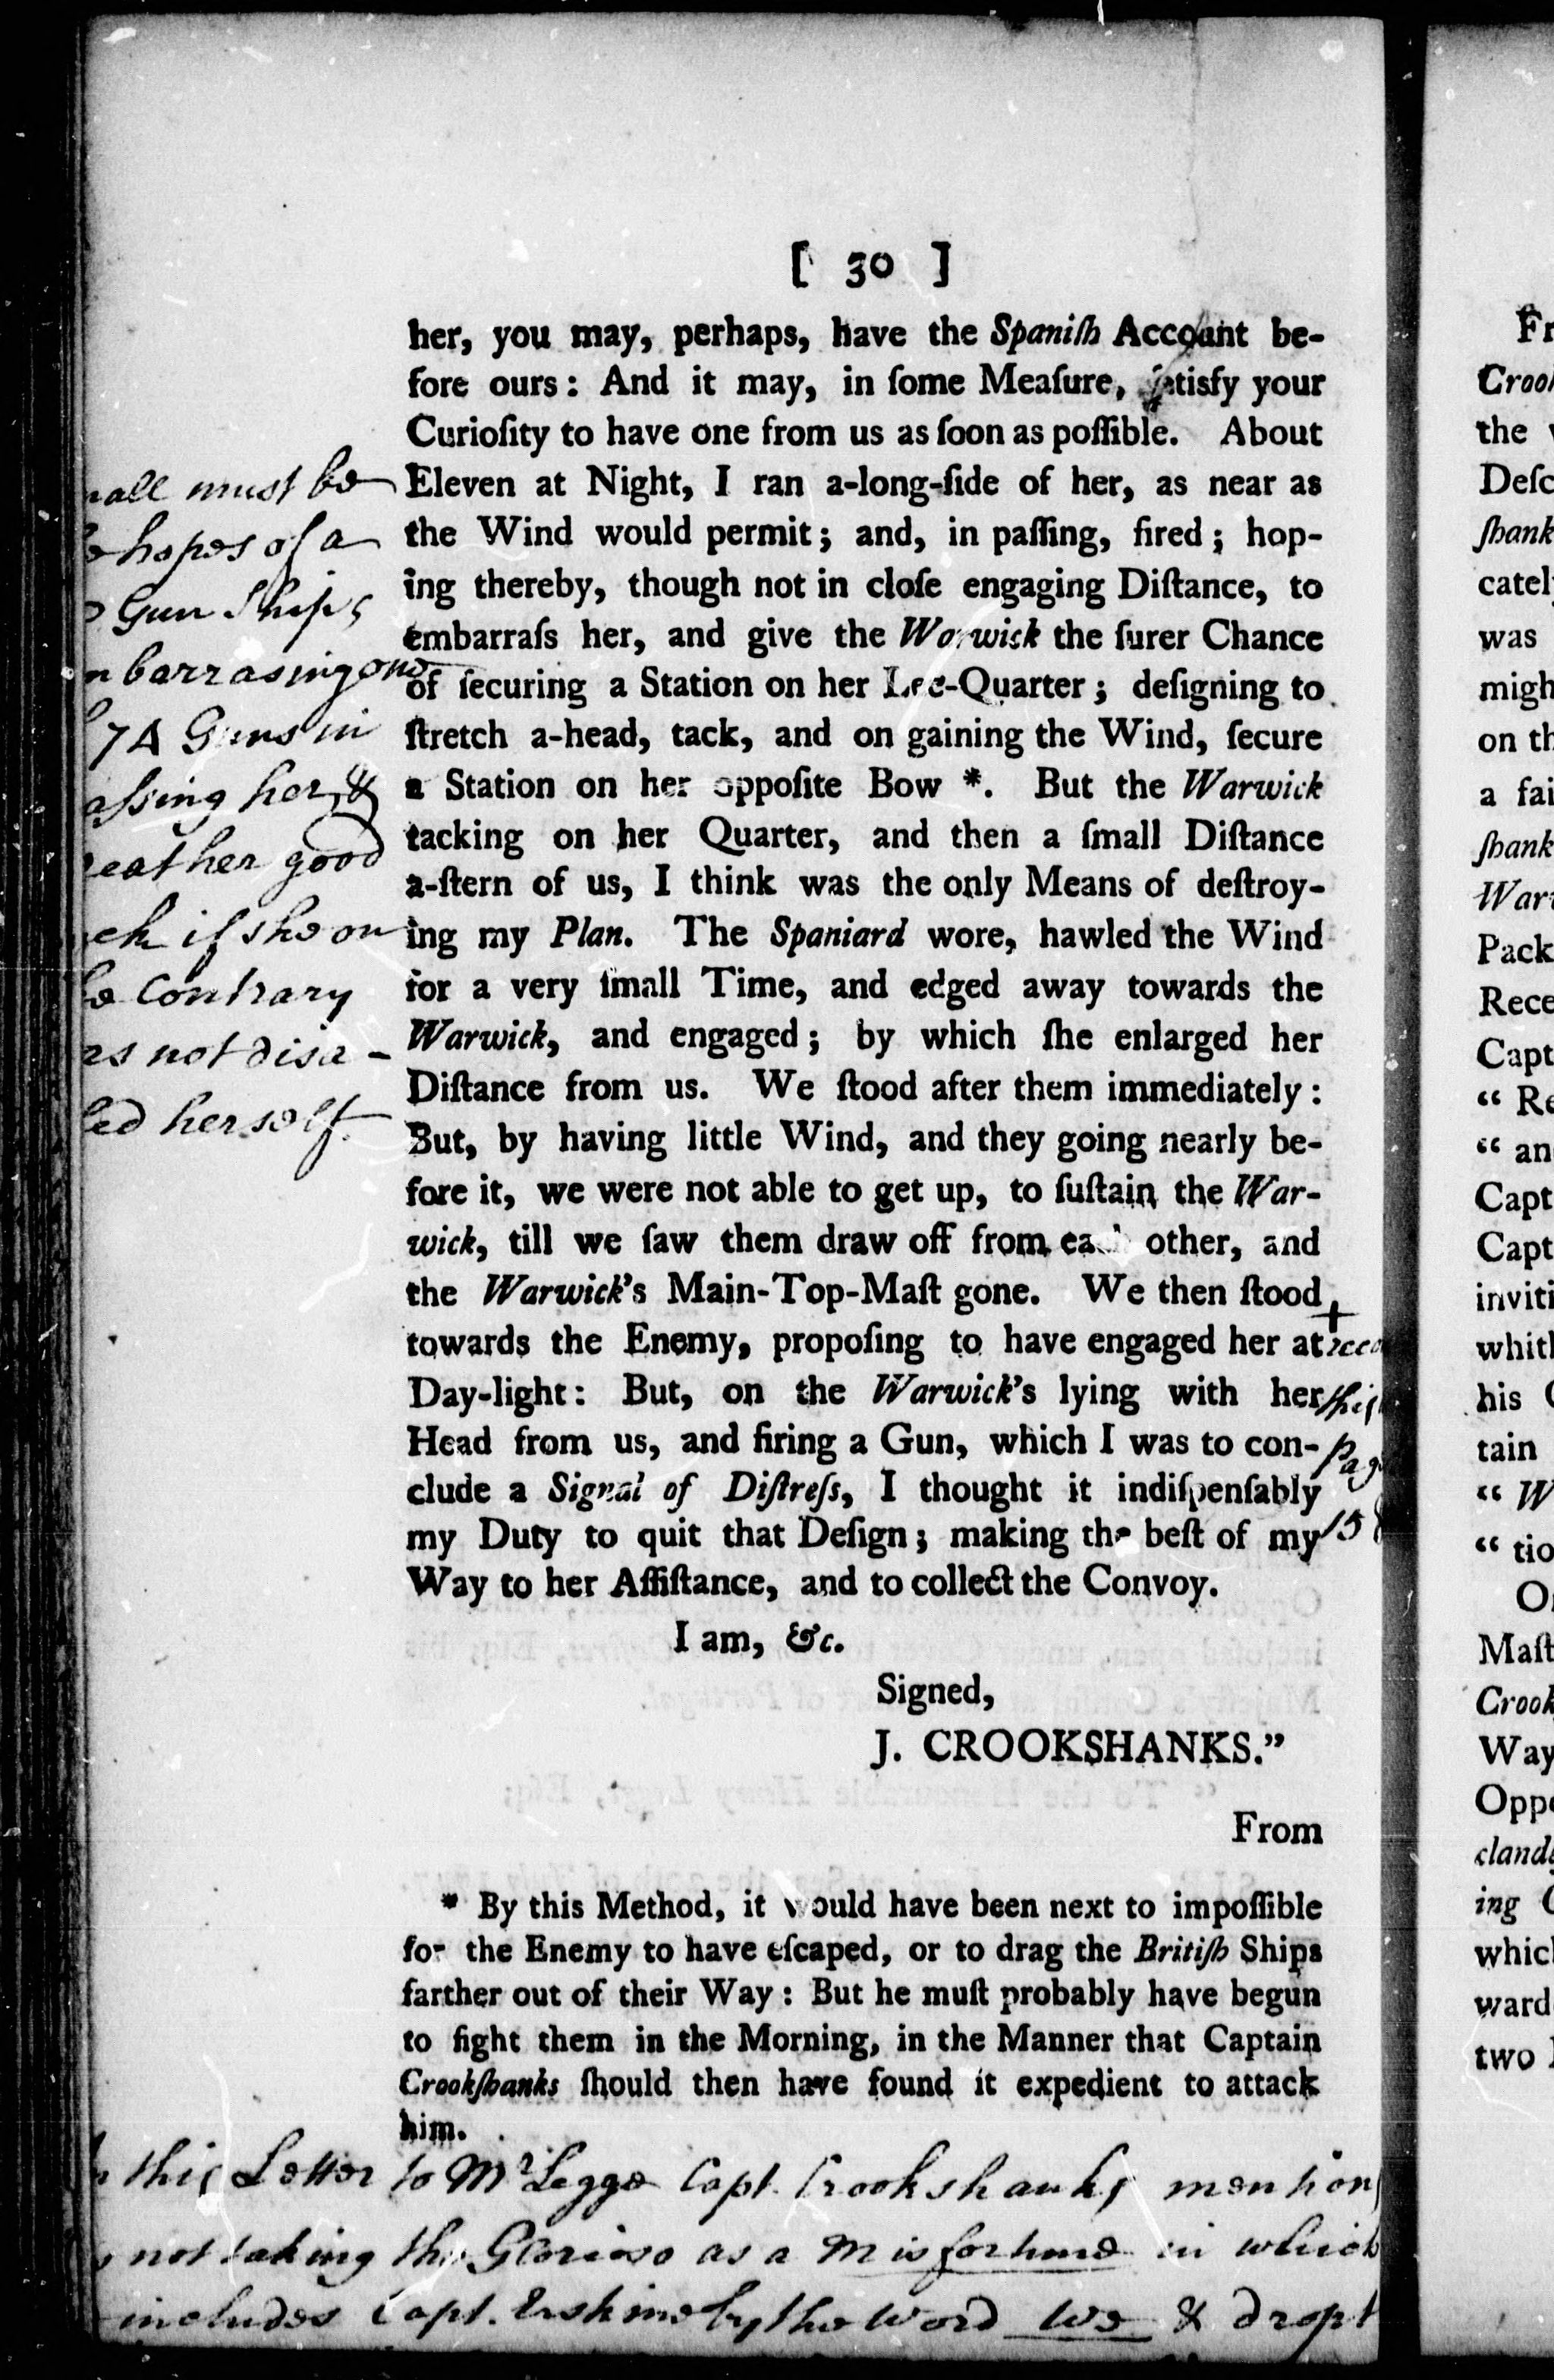 [ 30 ]
her, you may, perhaps, have the Spaniſh Account be-
fore ours: And it may, in ſome Meaſure, ſatisfy your
Curioſity to have one from us as ſoon as poſſible. About
Eleven at Night, I ran a-long-ſide of her, as near as
the Wind would permit; and, in paſſing, fired; hop-
ing thereby, though not in cloſe engaging Diſtance, to
embarraſs her, and give the Warwick the ſurer Chance
of ſecuring a Station on her Lee-Quarter; deſigning to
ſtretch a-head, tack, and on gaining the Wind, ſecure
a Station on her oppoſite Bow *. But the Warwick
tacking on her Quarter, and then a ſmall Diſtance
a-ſtern of us, I think was the only Means of deſtroy-
ing my Plan. The Spaniard wore, hawled the Wind
for a very ſmall Time, and edged away towards the
Warwick, and engaged; by which ſhe enlarged her
Diſtance from us. We ſtood after them immediately:
But, by having little Wind, and they going nearly be-
fore it, we were not able to get up, to ſuſtain the War-
wick, till we ſaw them draw off from each other, and
the Warwick's Main-Top-Maſt gone. We then ſtood
towards the Enemy, propoſing to have engaged her at
Day-light: But, on the Warwick's lying with her
Head from us, and firing a Gun, which I was to con-
clude a Signal of Diſtreſs, I thought it indiſpenſably
my Duty to quit that Deſign; making the beſt of my
Way to her Aſſiſtance, and to collect the Convoy.
I am, &c.
Signed,
J. CROOKSHANKS.”
From
* By this Method, it would have been next to impoſſible
for the Enemy to have eſcaped, or to drag the Britiſh Ships
farther out of their Way: But he muſt probably have begun
to fight them in the Morning, in the Manner that Captain
Crookſhanks ſhould then have found it expedient to attack
him.
all must be
hopes of a
Gun Ships
mbarrasing one
74 Guns in
aſsing her &
eather good
if she on
Contrary
as not disa-
led herself.
+
this
Pag
158
this Letter to Mr Legge Capt. Crookshanks mentions
not taking the Glorioso as a Misfortune in which
includes Capt. Erskine by the word we & dropt
Fr
Crook
the w
Deſc
ſhank
cately
was
migh
on th
a fai
ſhank
Warw
Pack
Rece
Capt
“ Re
“ an
Capt
Capt
inviti
whith
his C
tain
“ W
“ tio
O
Maſt
Crook
Way
Oppo
clande
ing C
which
ward
two